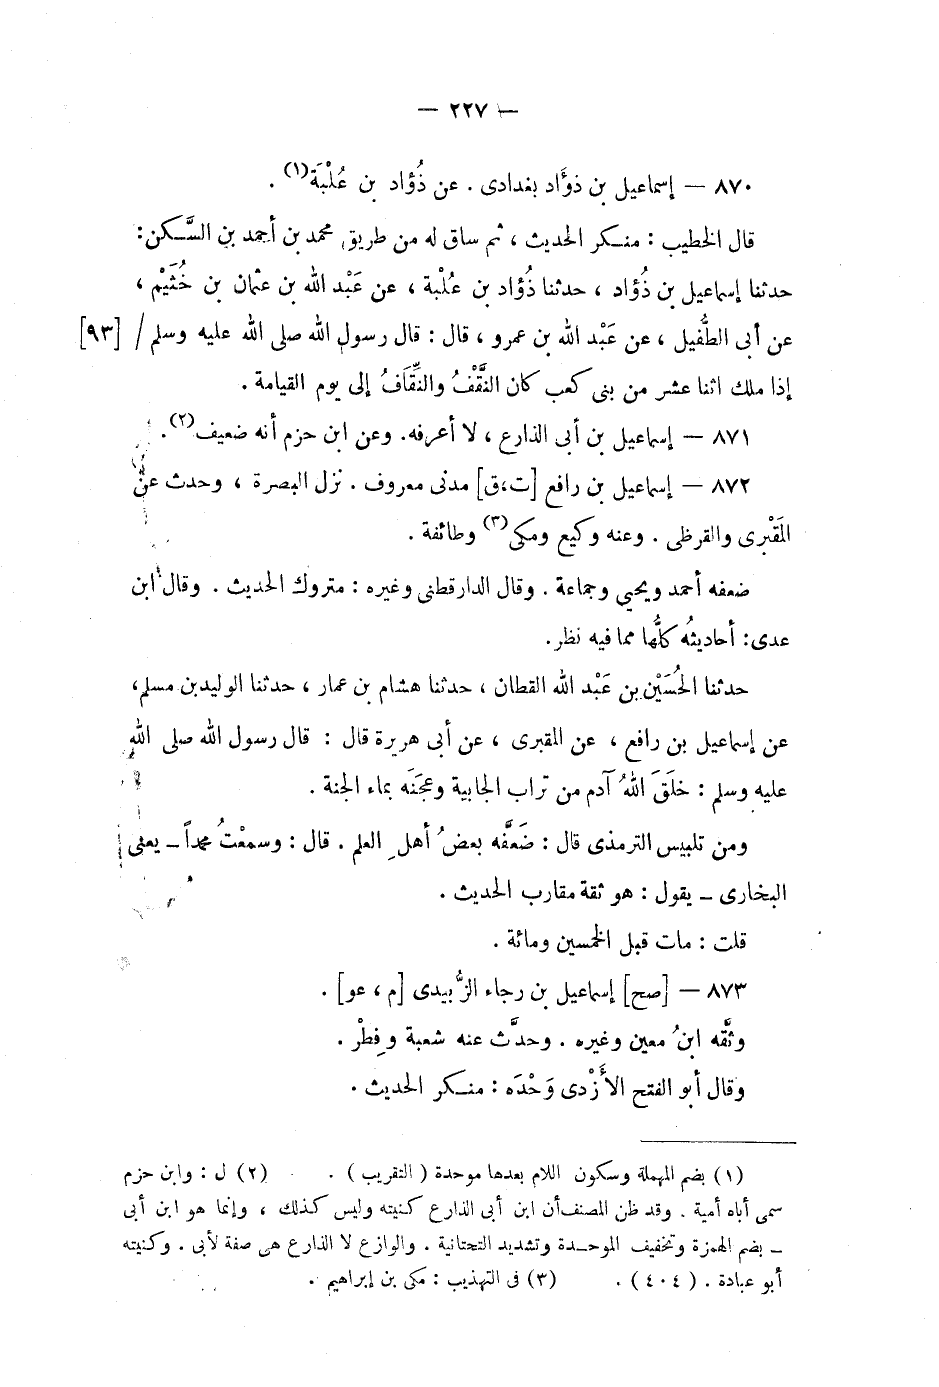 — ٢٢٧ —
٨٧٠ — إسماعيل بن ذؤَاد بغدادى . عن ذُؤاد بن عُلْبَة(١) .
قال الخطيب : منكر الحديث ، ثم ساق له من طريق محمد بن أحمد بن السَّكن :
حدثنا إسماعيل بن ذُؤاد ، حدثنا ذُؤاد بن عُلْبة ، عن عَبْد الله بن عثمان بن خُثَيْم ،
عن أبى الطُّفيل ، عن عَبْد الله بن عمرو ، قال : قال رسول الله صلى الله عليه وسلم / [٩٣]
إذا ملك اثنا عشر من بنى كعب كان النَّقْفُ والنِّقَافُ إلى يوم القيامة .
٨٧١ — إسماعيل بن أبى الذارع ، لا أعرفه . وعن ابن حزم أنه ضعيف(٢) .
٨٧٢ — إسماعيل بن رافع [ت،ق] مدنى معروف . نزل البصرة ، وحدث عن
المَقْبرى والقرظى . وعنه وكيع ومكى(٣) وطائفة .
ضعفه أحمد ويحيى وجماعة . وقال الدارقطنى وغيره : متروك الحديث . وقال ابن
عدى : أحاديثُه كلُّها مما فيه نظر .
حدثنا الحُسَيْن بن عَبْد الله القطان ، حدثنا هشام بن عمار ، حدثنا الوليد بن مسلم ،
عن إسماعيل بن رافع ، عن المقبرى ، عن أبى هريرة قال : قال رسول الله صلى الله
عليه وسلم : خلَقَ اللهُ آدم من تراب الجابية وعجَنَه بماء الجنة .
ومن تلبيس الترمذى قال : ضَعَّفه بعضُ أهلِ العلم . قال : وسمعْتُ محمداً ــ يعنى
البخارى ــ يقول : هو ثقة مقارب الحديث .
قلت : مات قبل الخمسين ومائة .
٨٧٣ — [صح] إسماعيل بن رجاء الزُّبيدى [م ، عو] .
وثَّقه ابنُ معين وغيره . وحدَّث عنه شعبة وفِطْر .
وقال أبو الفتح الأَزْدى وَحْدَه : منكر الحديث .
(١) بضم المهملة وسكون اللام بعدها موحدة ( التقريب ) . (٢) ل : وابن حزم
سمى أباه أمية . وقد ظن المصنف أن ابن أبى الذارع كنيته وليس كذلك ، وإنما هو ابن أبى
ــ بضم الهمزة وتخفيف الموحدة وتشديد التحتانية . والوازع لا الذارع هى صفة لأبى . وكنيته
أبو عبادة . ( ٤٠٤ ) . (٣) فى التهذيب : مكى بن إبراهيم .